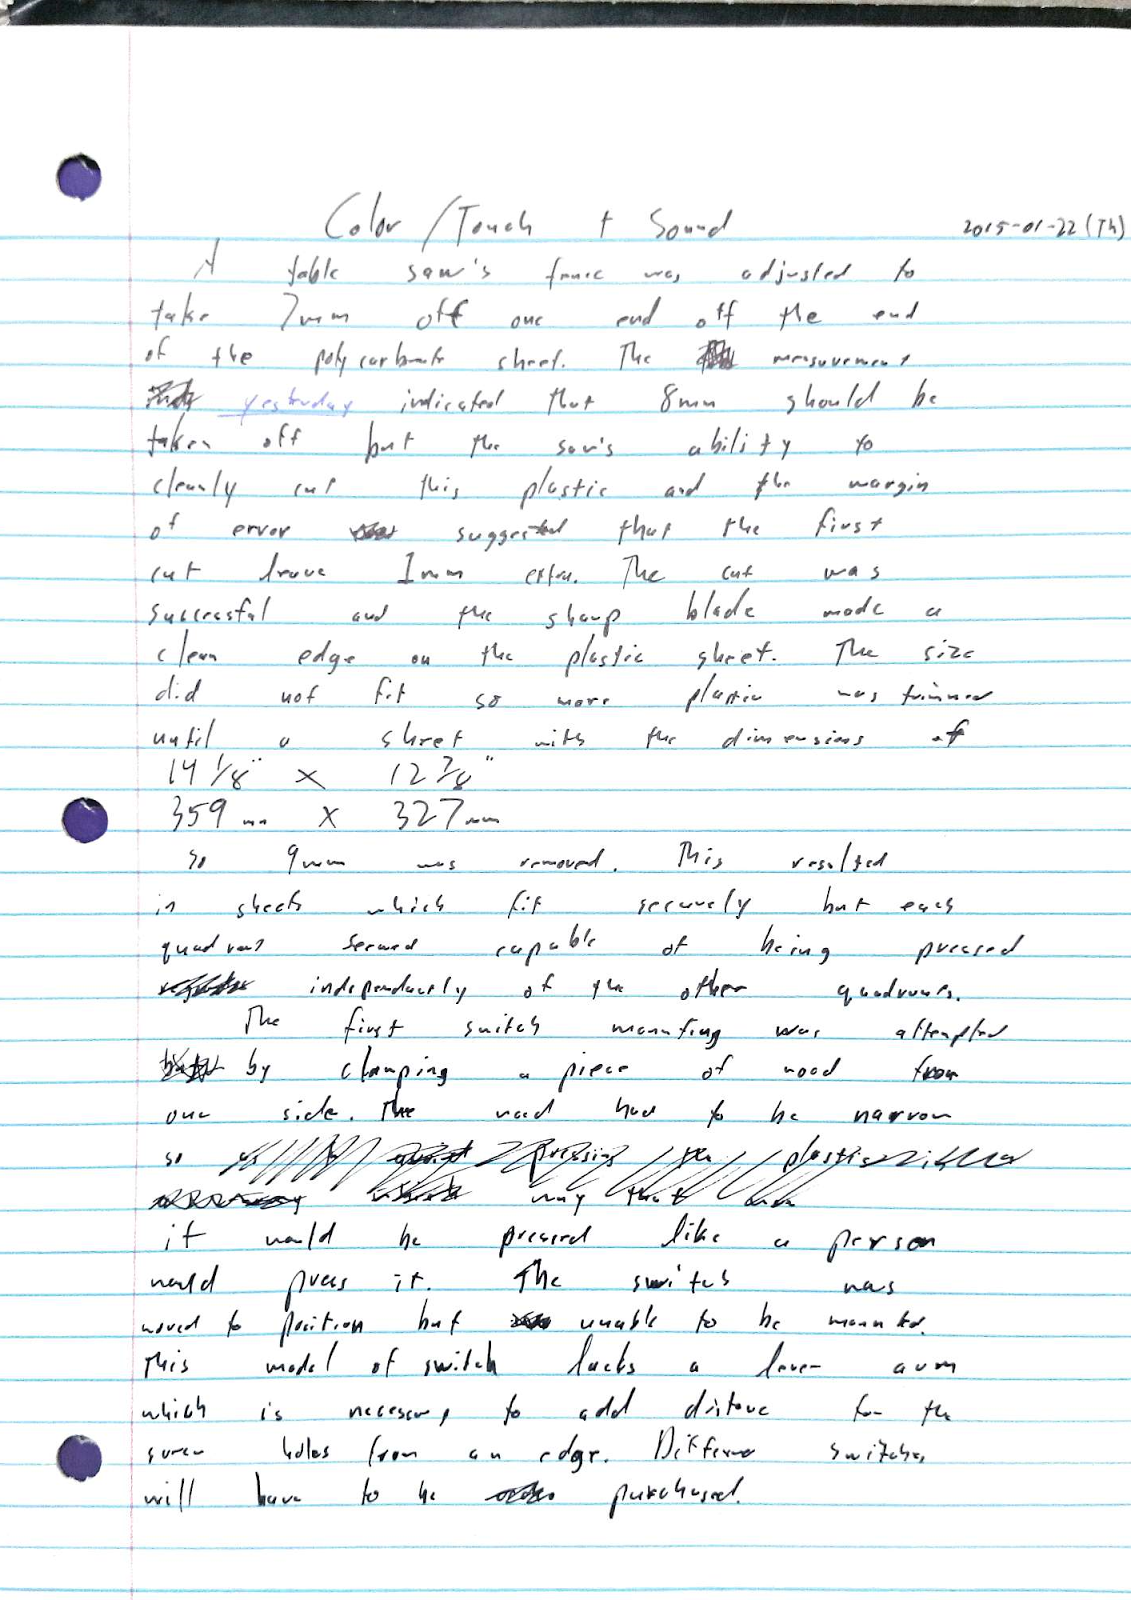 Color/Touch + Sound 2015-01-22 (Th)
A table saw's fence was adjusted to
take 7mm off one end off the end
of the polycarbonate sheet. The measurement
yesterday indicated that 8mm should be
taken off but the saw's ability to
cleanly cut this plastic and the margin
of error suggested that the first
cut leave 1mm extra. The cut was
successful and the sharp blade made a
clean edge on the plastic sheet. The size
did not fit so more plastic was trimmed
until a sheet with the dimensions of
14 1/8" X 12 7/8"
359mm X 327mm
so 9mm was removed. This resulted
in sheets which fit securely but each
quadrant seemed capable of being pressed
independently of the other quadrants.
The first switch mounting was attempted
by clamping a piece of wood from
one side. The wood had to be narrow
so pressing the plastic
way that
it would be pressed like a person
would press it. The switch was
moved to position but unable to be mounted.
This model of switch lacks a lever arm
which is necessary to add distance for the
screw holes from an edge. Different switches
will have to be purchased.